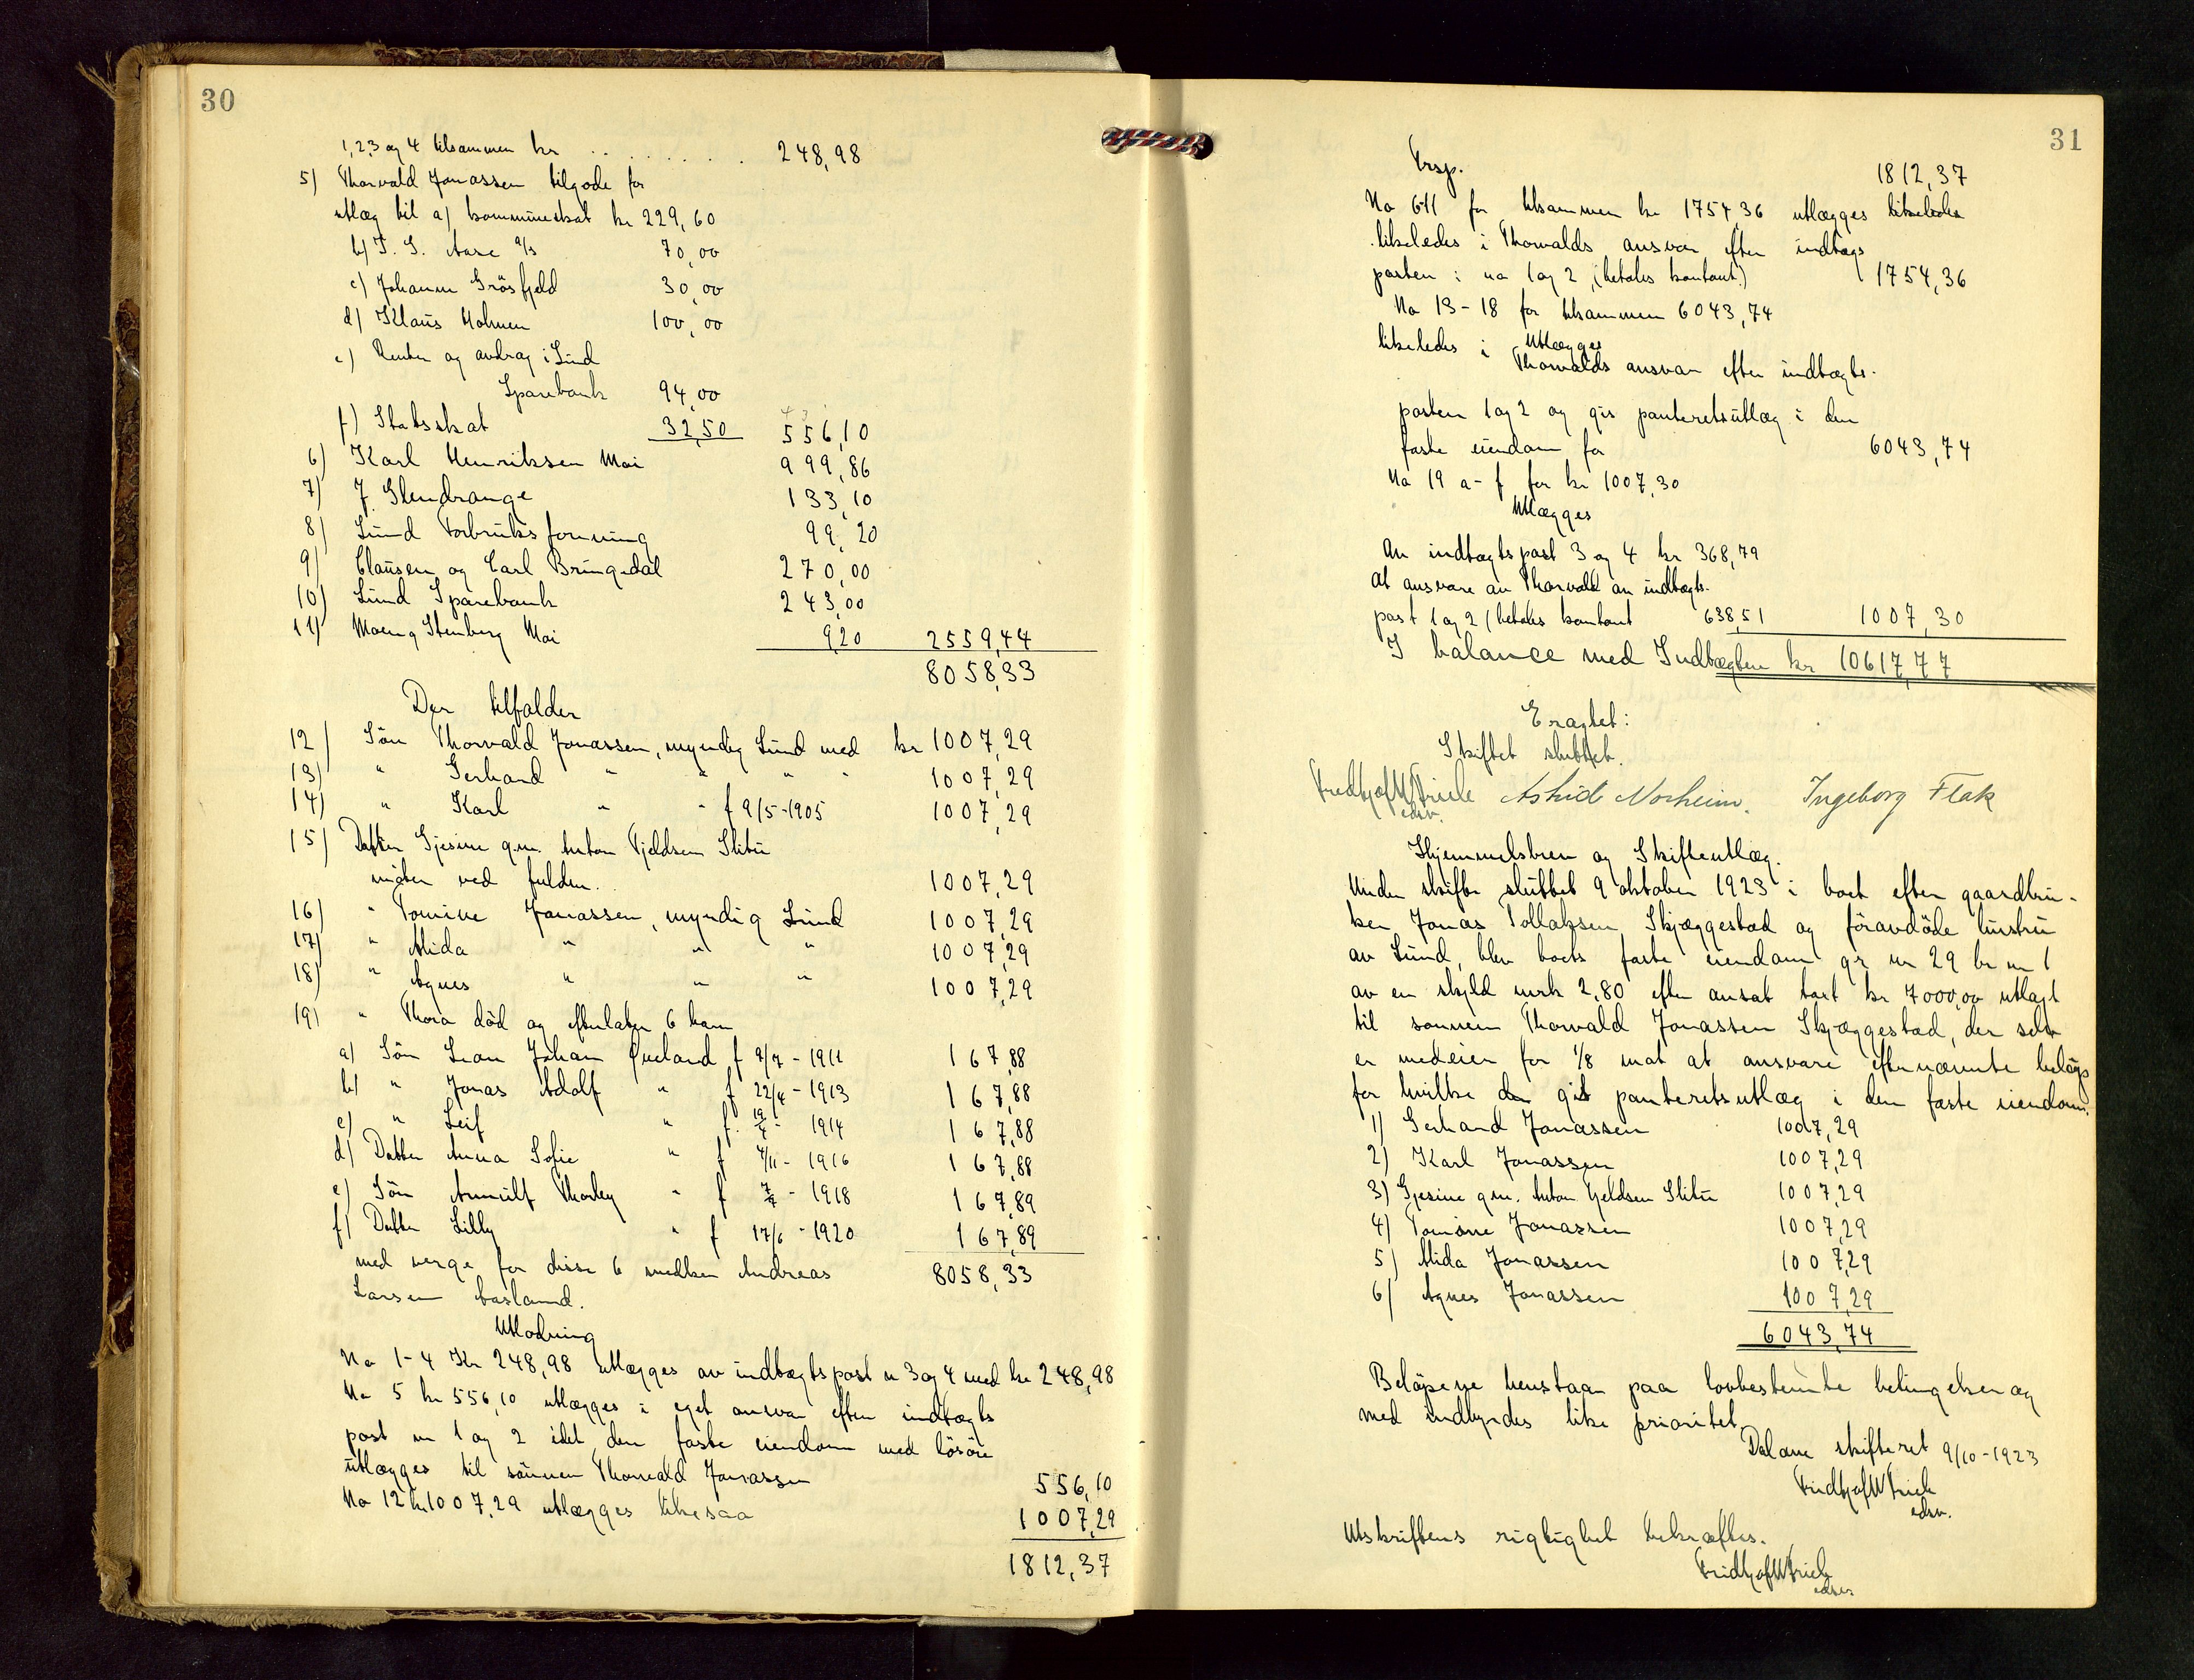 30
1, 2, 3 og 4 tilsammen kr . . . . . . . . 248,98
5) Thorvald Jonassen tilgode for
utlæg til a) kommuneskat kr 229,60
b) T. S. Aase a/s 70,00
c) Johann Grøsfjeld 30,00
d) Klaus Holmen 100,00
e) Renter og avdrag i Lund
Sparebank 94,00
f) Statsskat 32,50 556,10
6) Karl Henriksen Moi 999,86
7) J. Slendrange 133,10
8) Lund Forbruksforening 99,20
9) Clausen og Carl Bringedal 270,00
10) Lund Sparebank 243,00
11) Moen g Stenberg Moi 9,20 2559,44
8058,33
Der tilfalder
12) Søn Thorvald Jonassen, myndig Lund med kr 1007,29
13) " Gerhard " " " " 1007,29
14) " Karl " " f 9/5-1905 1007,29
15) Datter Gjesine g.m. Anton Fjeldsen Slitu
møter ved fulden. 1007,29
16) " Tomine Jonassen, myndig Lund 1007,29
17) " Alida " " " 1007,29
18) " Agnes " " " 1007,29
19) " Thora død og efterlater 6 barn
a) Søn Leon Johan Qveland f 9/7 - 1911 167,88
b) " Jonas Adolf " f 22/4 - 1913 167,88
c) " Leif " f. 19/4 - 1914 167,88
d) Datter Anna Sofie " f 4/11 - 1916 167,88
e) Søn Arnulf Thorley " f 7/4 - 1918 167,89
f) Datter Lilly " f 17/6 - 1920 167,89
med verge for disse 6 medlem Andreas 8058,33
Larsen Aasland.
Utlodning
No 1-4 Kr 248,98 utlægges av indtægtspost n 3 og 4 med kr 248,98
No 5 kr 556,10 utlægges i eget ansvar efter indtægts
post nr 1 og 2 idet den faste eiendom med løsøre
utlægges til sønnen Thorvald Jonassen 556,10
No 12 kr 1007,29 utlægges likesaa 1007,29
1812,37
31
Trsp. 1812,37
No 6-11 for tilsammen kr 1754,36 utlægges likeledes
likeledes i Thorvalds ansvar efter indtægs
posten : no 1 og 2, (betales kontant) 1754,36
No 13-18 for tilsammen 6043,74
Utlægges
likeledes i Thorvalds ansvar efter indtægts-
posten 1 og 2 og gis panteretsutlæg i den
faste eiendom for 6043,74
No 19 a-f for kr 1007,30
Utlægges
Av indtægtspost 3 og 4 kr 368,79
At ansvare av Thorvald av indtægts-
post 1 og 2 (betales kontant 638,51 1007,30
I balance med Indtægten kr 10617,77
Eragtet:
Skiftet sluttet.
Fridtjof W Friele Astrid Norheim. Ingeborg Flak
edsv.
Hjemmelsbrev og Skifteutlæg.
Under skifte sluttet 9 oktober 1923 i boet efter gaardbru-
ker Jonas Tollaksen Skjæggestad og føravdøde hustru
av Lund, blev boets faste eiendom gr nr 29 br nr 1
av en skyld mrk 2,80 efter ansat takt kr 7000,00 utlagt
til sønnen Thorvald Jonassen Skjæggestad, der selv
er medeier for 1/8 mot at ansvare efternævnte beløp
for hvilke der git panteretsutlæg i den faste eiendom.
1) Gerhard Jonassen 1007,29
2) Karl Jonassen 1007,29
3) Gjesine g.m. Anton Fjeldsen Slitu 1007,29
4) Tomine Jonassen 1007,29
5) Alida Jonassen 1007,29
6) Agnes Jonassen 1007,29
6043,74
Beløpene henstaar paa lovbestemte betingelser og
med indbyrdes like prioritet.
Dalane skifteret 9/10-1923
Fridtjof W Friele
edsv.
Utskriftens rigtighet bekræftes.
Fridtjof W Friele
edsv.